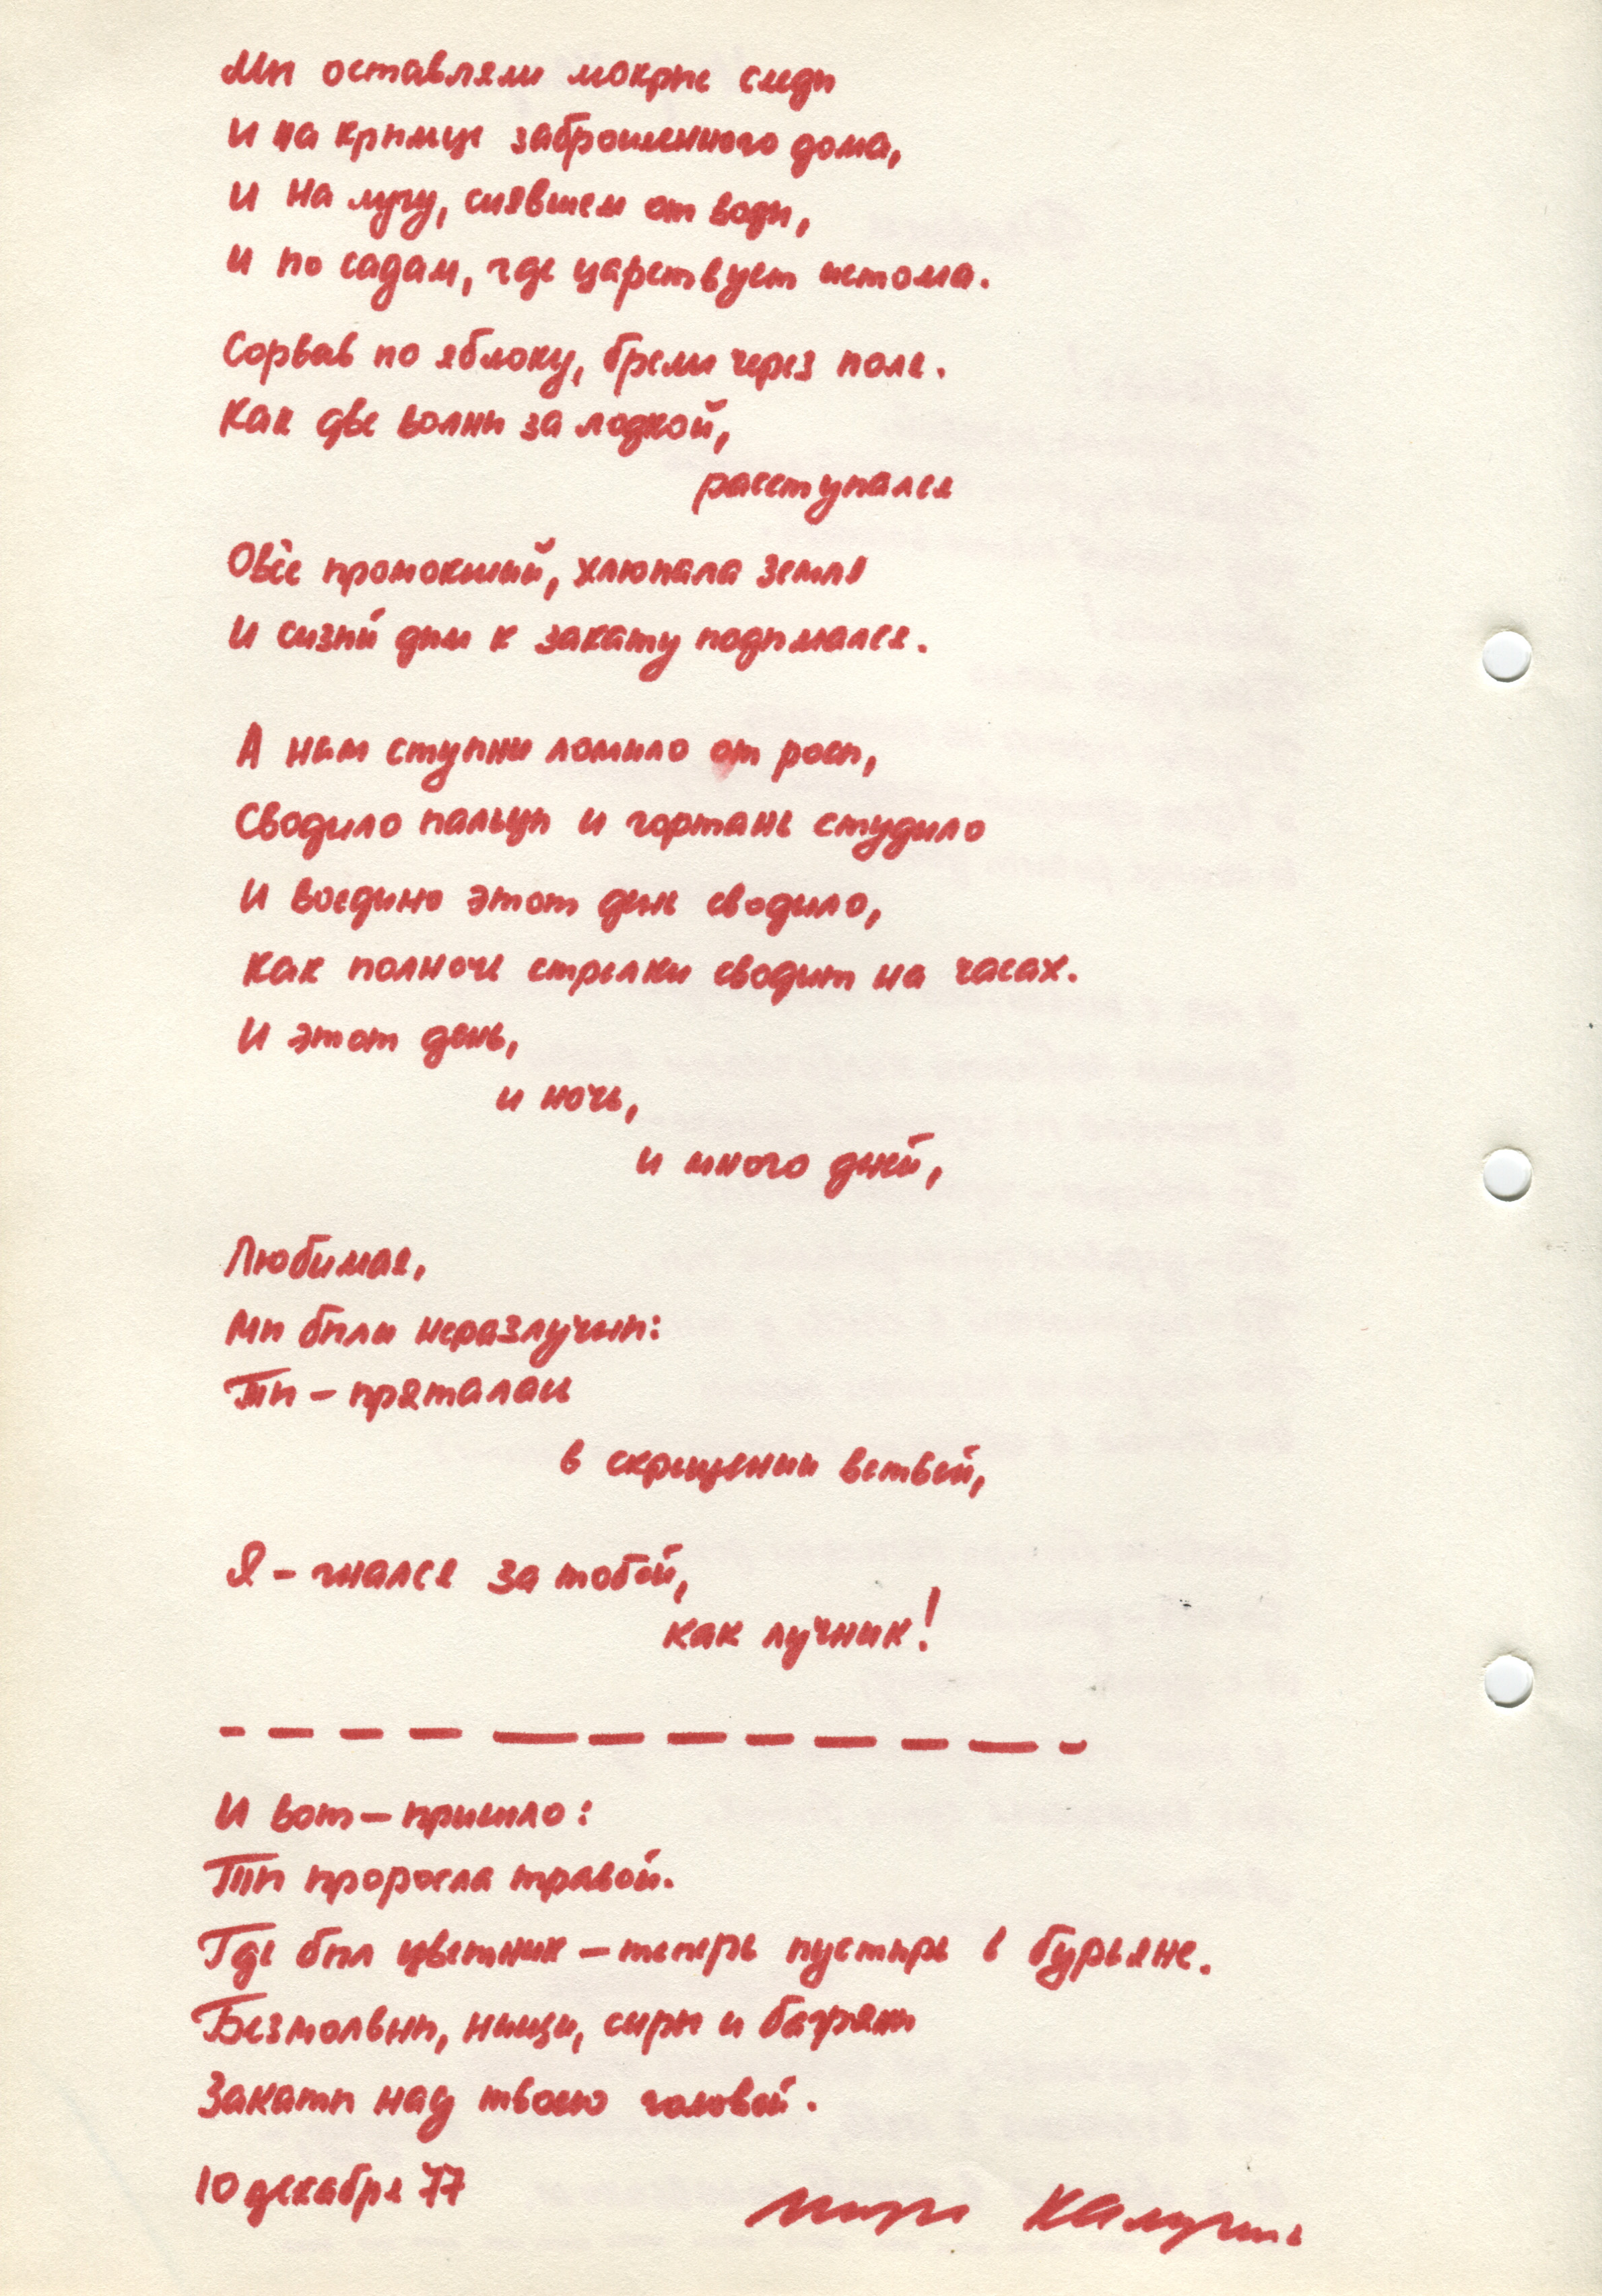 Мы оставляли мокрые следы
И на крыльце заброшенного дома,
И на лугу, сиявшем от воды,
И по садам, где царствует истома.
Сорвав по яблоку, брели через поле.
Как две волны за лодкой,
расступался
Овёс промокший, хлюпала земля
И сизый дым к закату подымался.
А нам ступни ломило от росы,
Сводило пальцы и гортань студило
И воедино этот день сводило,
Как полночь стрелки сводит на часах.
И этот день,
и ночь,
и много дней,
Любимая,
Мы были неразлучны:
Ты – пряталась
в скрещении ветвей,
Я – гнался за тобой,
как лучник!
И вот – пришло:
Ты проросла травой.
Где был цветник – теперь пустырь в бурьяне.
Безмолвны, нищи, сиры и багряны
Закаты над твоею головой.
10 декабря 77